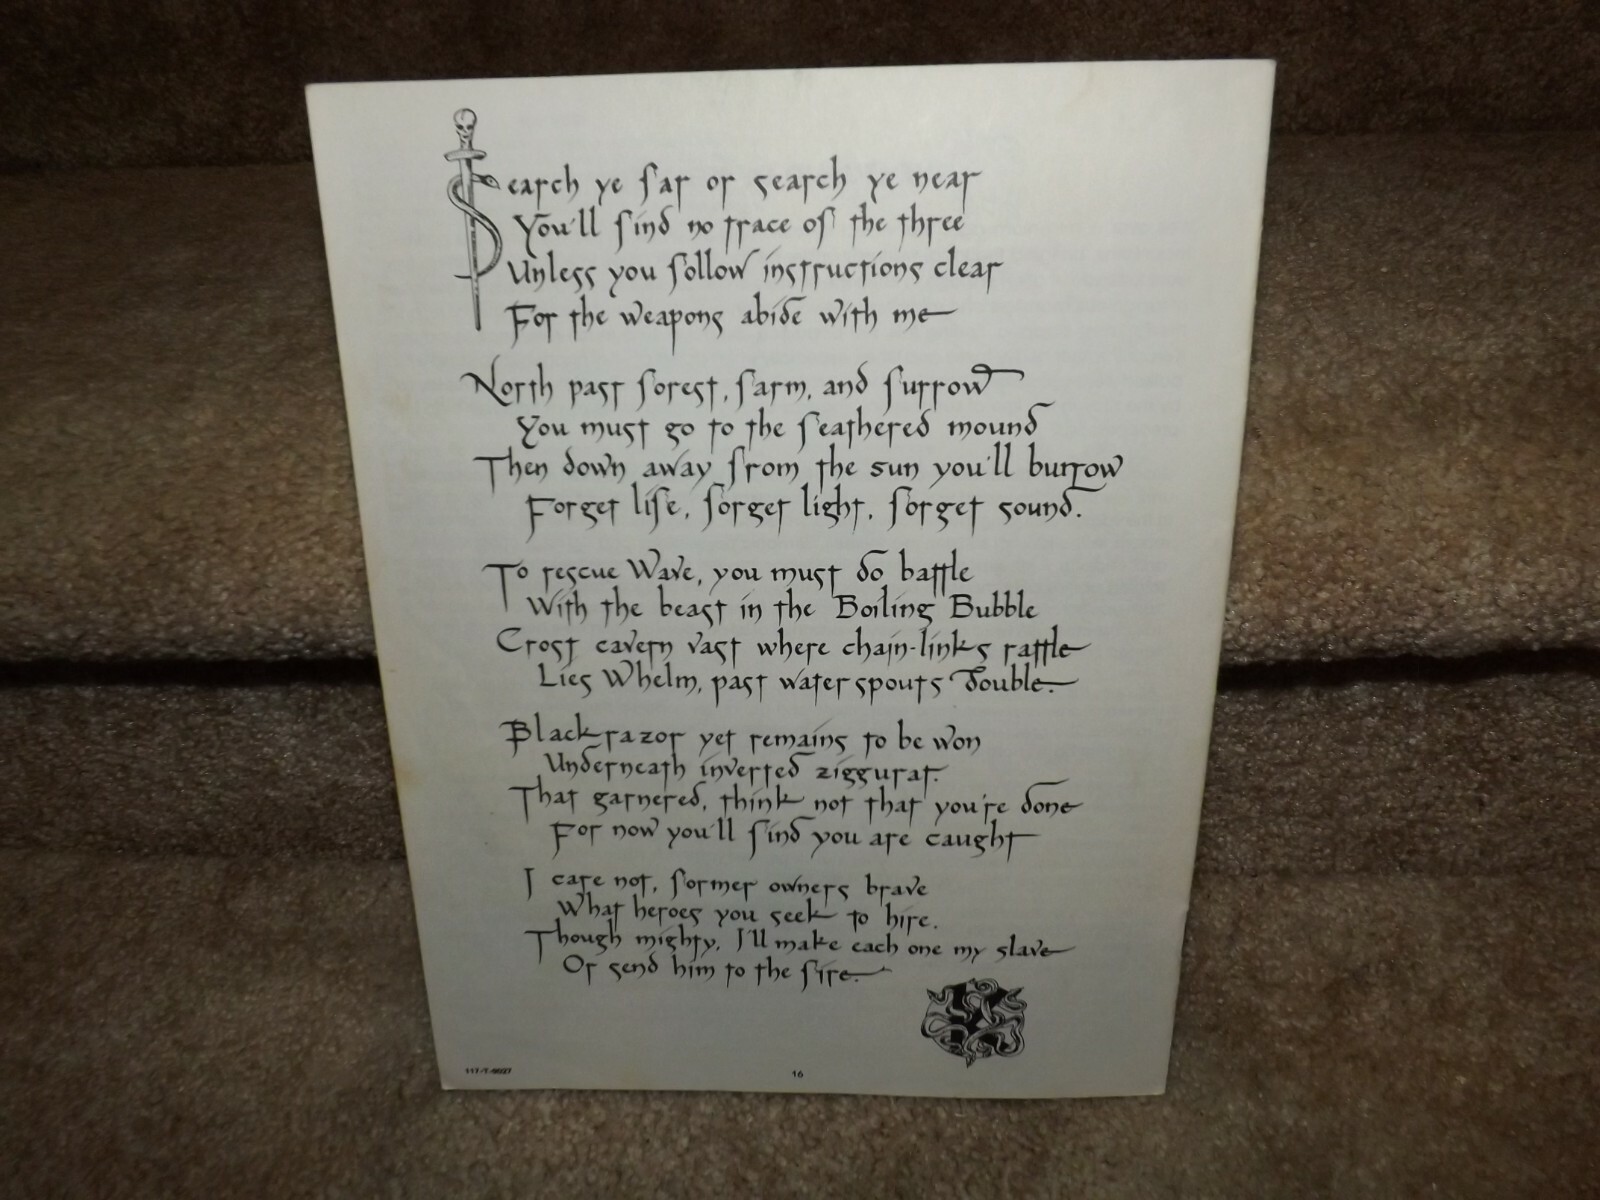 Search ye far or search ye near
You'll find no trace of the three
Unless you follow instructions clear
For the weapons abide with me
North past forest, farm, and furrow
You must go to the feathered mound
Then down away from the sun you'll burrow
Forget life, forget light, forget sound.
To rescue Wave, you must do battle
With the beast in the Boiling Bubble
Crost cavern vast where chain-links rattle
Lies Whelm, past water spouts double.
Blackrazor yet remains to be won
Underneath inverted ziggurat.
That garnered, think not that you're done
For now you'll find you are caught
I care not, former owners brave
What heroes you seek to hire.
Though mighty, I'll make each one my slave
Or send him to the fire.
117-T-9027
16